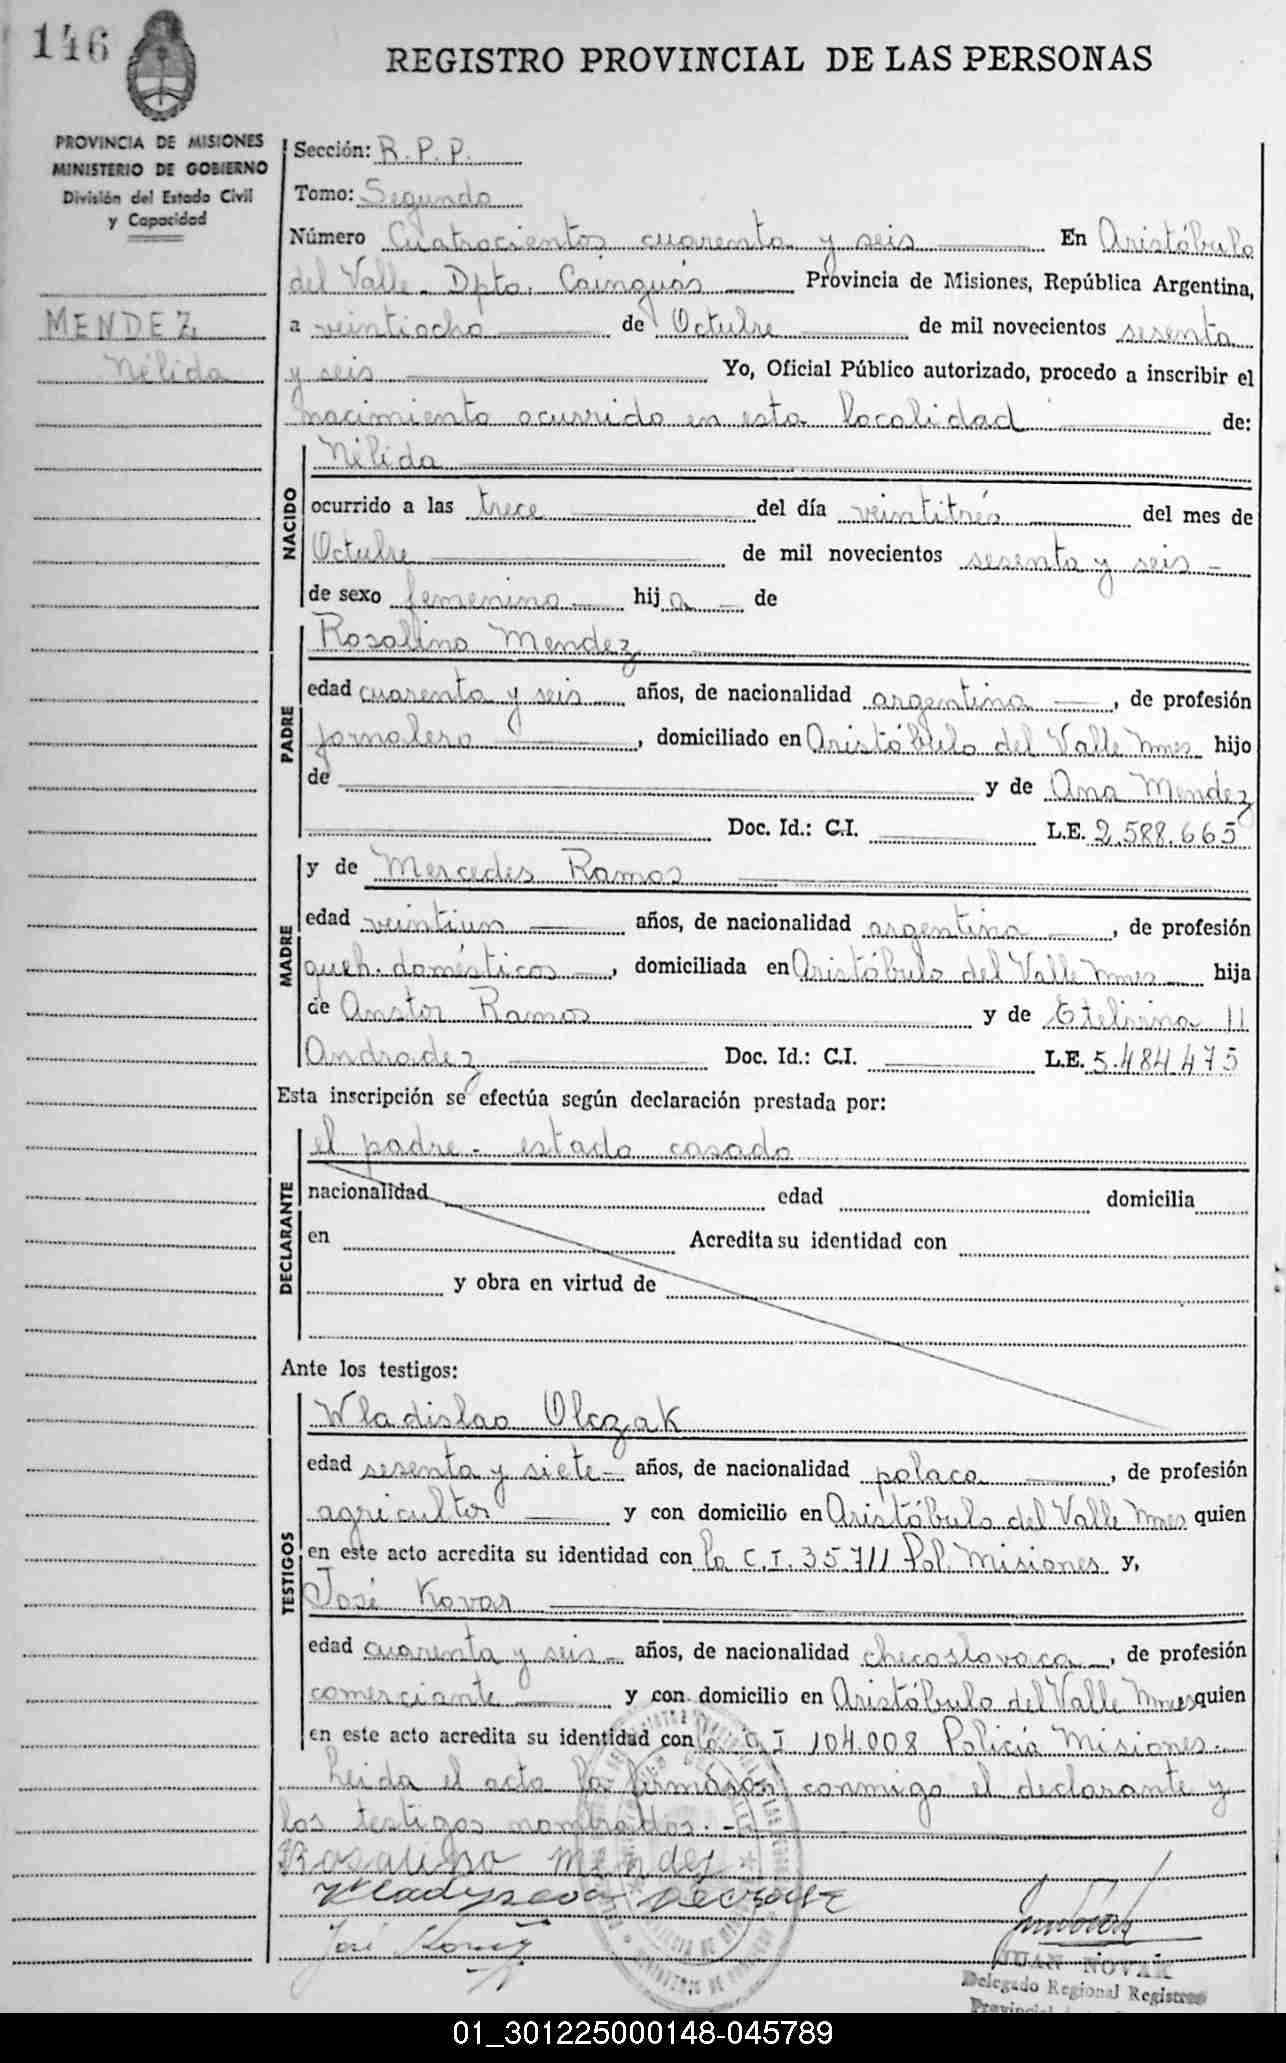 146
REGISTRO PROVINCIAL DE LAS PERSONAS
PROVINCIA DE MISIONES
MINISTERIO DE GOBIERNO
División del Estado Civil
y Capacidad
MENDEZ
Nélida
Sección: R.P.P.
Tomo: Segundo
Número Cuatrocientos cuarenta y seis En Aristóbulo
del Valle - Dpto. Cainguás Provincia de Misiones, República Argentina,
a veintiocho de Octubre de mil novecientos sesenta
y seis Yo, Oficial Público autorizado, procedo a inscribir el
nacimiento ocurrido en esta localidad de:
NACIDO
Nélida
ocurrido a las trece del día veintitrés del mes de
Octubre de mil novecientos sesenta y seis -
de sexo femenino hija de
PADRE
Rosalino Mendez
edad cuarenta y seis años, de nacionalidad argentina, de profesión
jornalero, domiciliado en Aristóbulo del Valle Mnes hijo
de y de Ana Mendez
Doc. Id.: C.I. L.E. 2.588.665
MADRE
y de Mercedes Ramos
edad veintiun años, de nacionalidad argentina, de profesión
queh. domésticos, domiciliada en Aristóbulo del Valle Mnes hija
de Anstor Ramos y de Etelvina
Andradez Doc. Id.: C.I. L.E. 5.484.475
Esta inscripción se efectúa según declaración prestada por:
DECLARANTE
el padre - estado casado
nacionalidad edad domicilia
en Acredita su identidad con
y obra en virtud de
Ante los testigos:
TESTIGOS
Wladislao Olczak
edad sesenta y siete - años, de nacionalidad polaca, de profesión
agricultor y con domicilio en Aristóbulo del Valle Mnes quien
en este acto acredita su identidad con la C.I. 35.711 Pol. Misiones y,
José Kovar
edad cuarenta y seis - años, de nacionalidad checoslovaca, de profesión
comerciante y con domicilio en Aristóbulo del Valle Mnes quien
en este acto acredita su identidad con la C.I 104.008 Policía Misiones.-
Leida el acta la firmaron conmigo el declarante y
los testigos nombrados.-
Rosalino Mendez
José
JUAN NOVAK
Delegado Regional Registro
Provincial
01_301225000148-045789